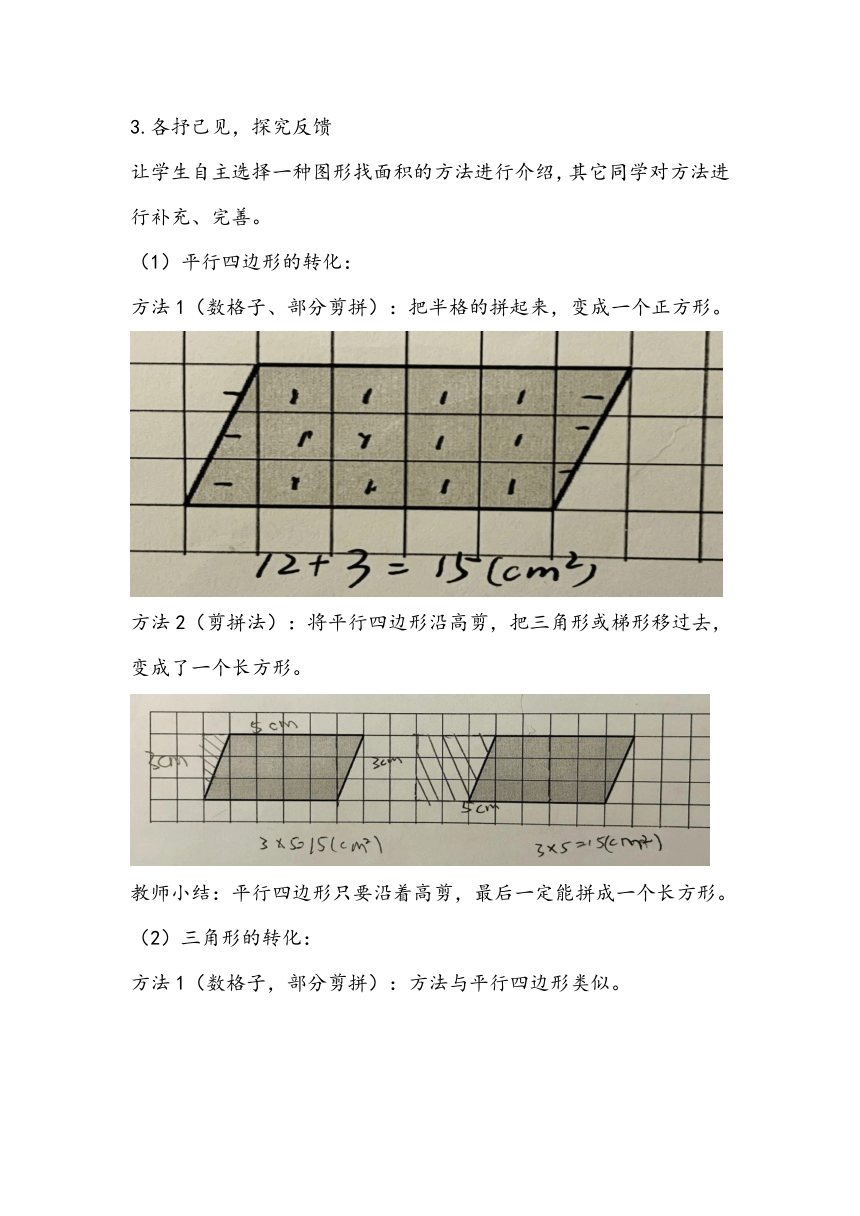 3.各抒己见，探究反馈
让学生自主选择一种图形找面积的方法进行介绍，其它同学对方法进
行补充、完善。
（1）平行四边形的转化：
方法1（数格子、部分剪拼）：把半格的拼起来，变成一个正方形。
12+3=15(cm²)
方法2（剪拼法）：将平行四边形沿高剪，把三角形或梯形移过去，
变成了一个长方形。
5cm
3cm
3cm
5cm
3×5=15(cm²)
3×5=15(cm²)
教师小结：平行四边形只要沿着高剪，最后一定能拼成一个长方形。
（2）三角形的转化：
方法1（数格子，部分剪拼）：方法与平行四边形类似。